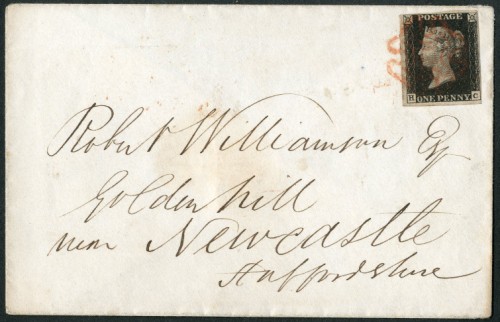 POSTAGE
H C
ONE PENNY
Robert Williamson Esq
Goldenhill
near Newcastle
Staffordshire